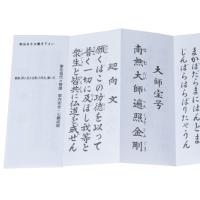 まかぼだらまにはんどま
じんばらはらばりたやうん
大師宝号
南無大師遍照金剛
廻向文
願くはこの功徳を以って
普く一切に及ぼし我等と
衆生と皆共に仏道を成ぜん